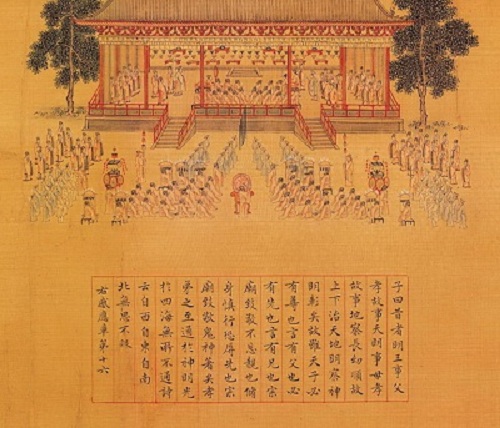 子曰昔者明王事父
孝故事天明事母孝
故事地察長幼順故
上下治天地明察神
明彰矣故雖天子必
有尊也言有父也必
有先也言有兄也宗
廟致敬不忘親也脩
身慎行恐辱先也宗
廟致敬鬼神著矣孝
悌之至通於神明光
於四海無所不通詩
云自西自東自南自
北無思不服
右感應章第十六